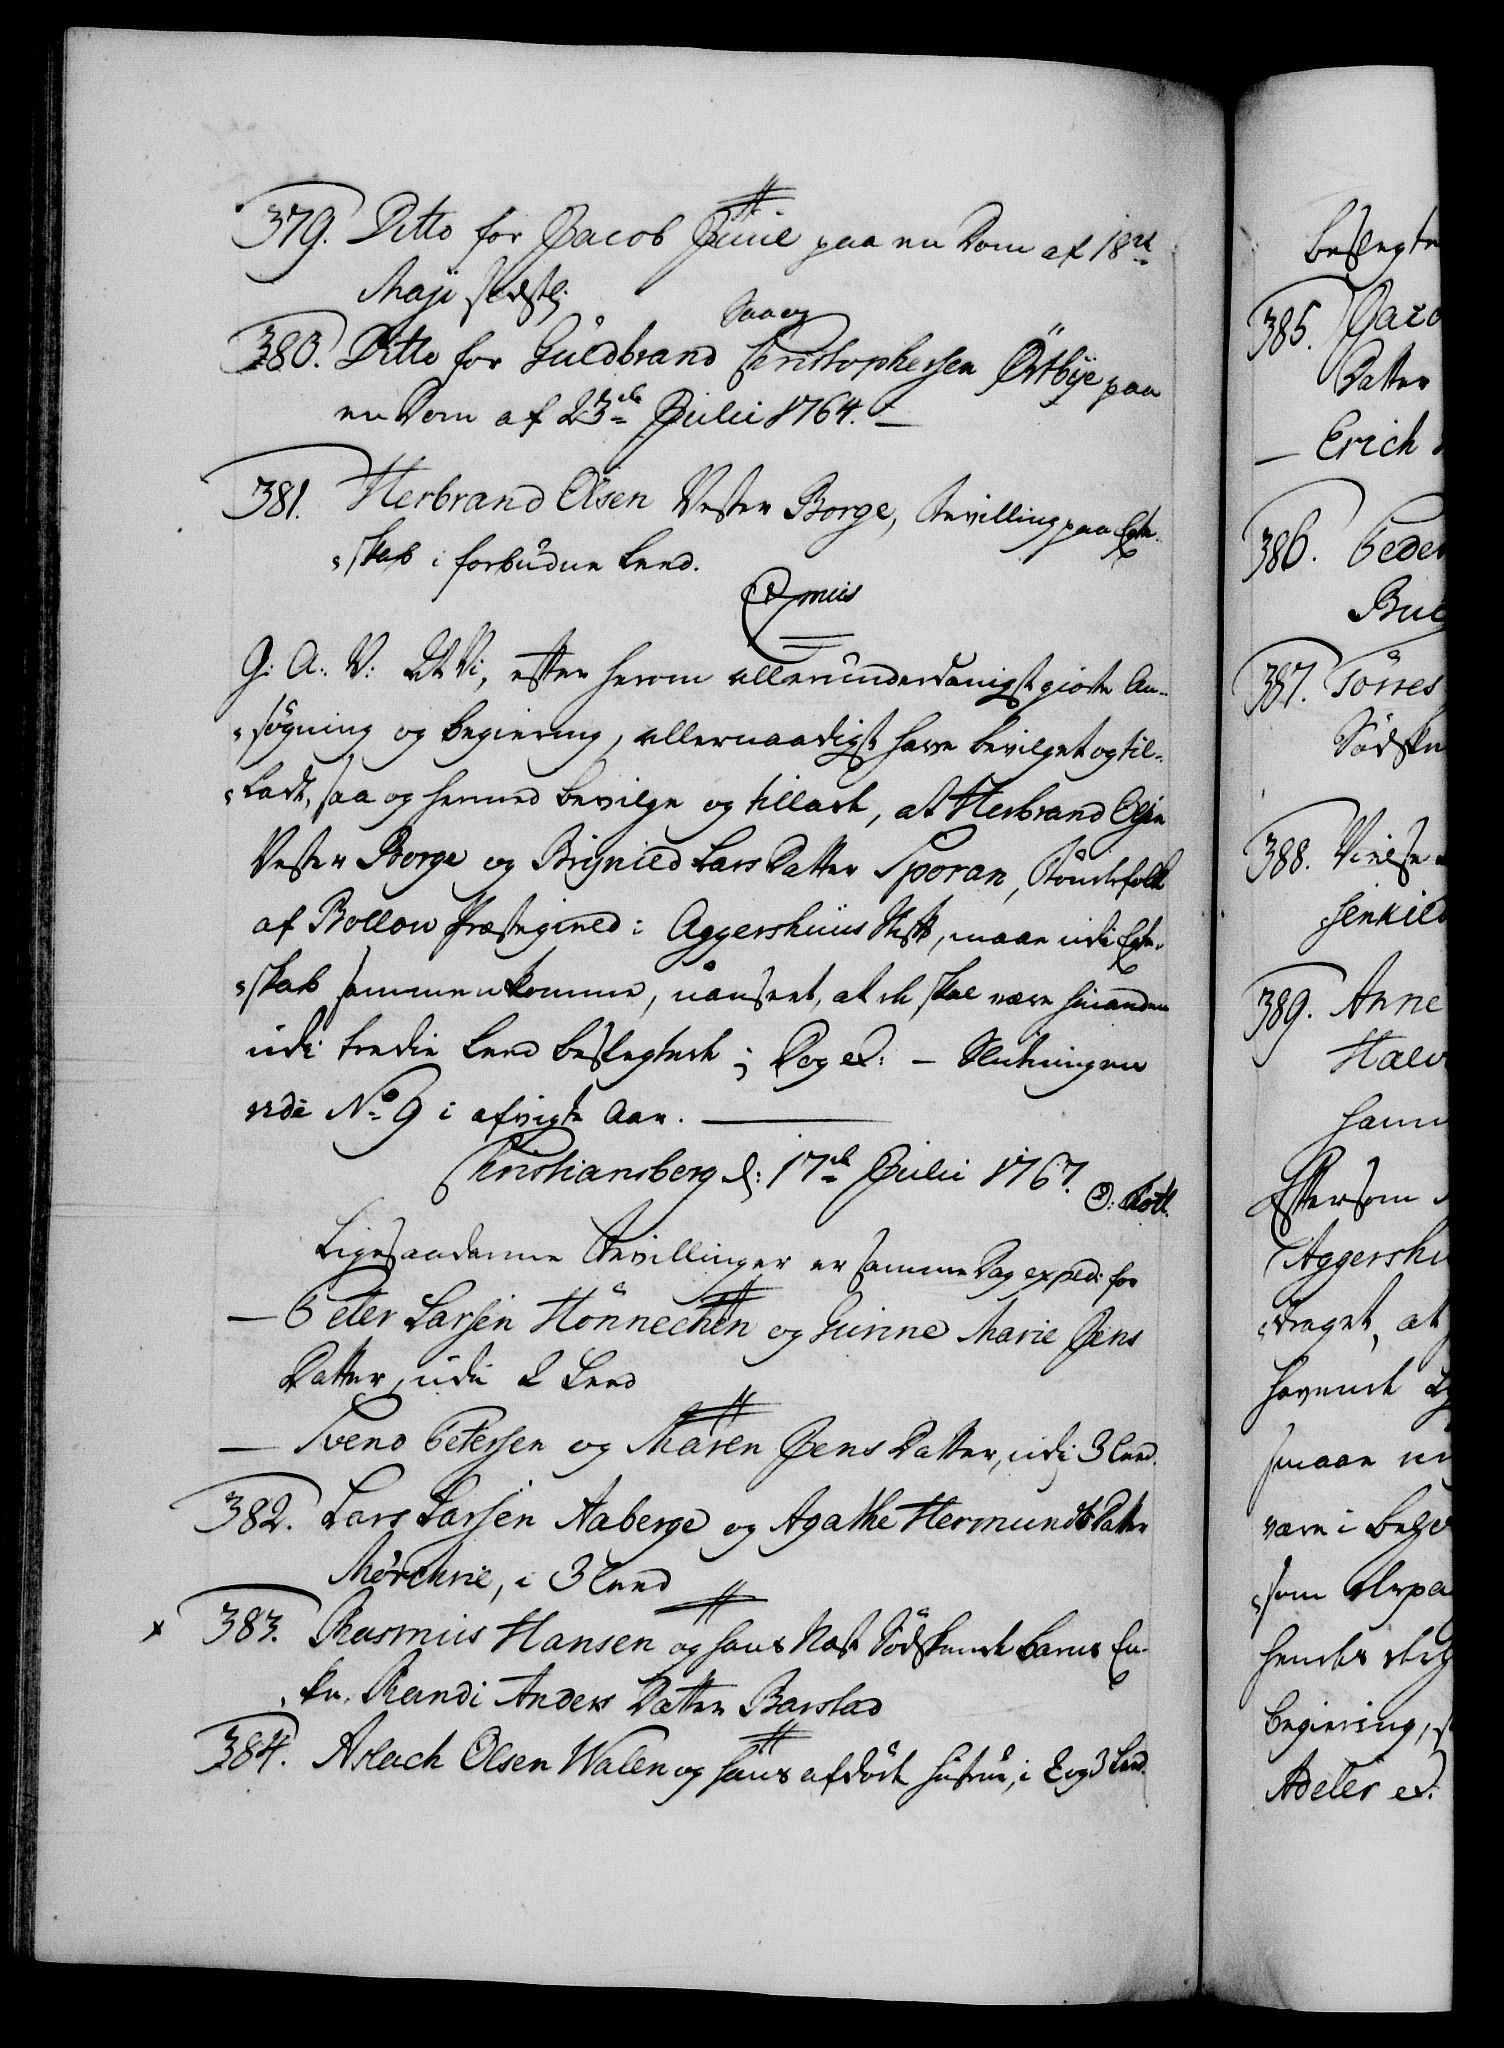 379. Ditto for Jacob Juul paa en Dom af 18de
Maji sidstl:
Saavog
380. Ditto for Guldbrand Christophersen Østbye paa
en Dom af 23de Julii 1764. —
381. Herbrand Olsen Vester Borge, Bevilling paa Egte-
skab i forbudne Leed.
Qvmiis
G: A: V: At Vi, efter herom allerunderdanigst giorte An-
søgning og begiering, allernaadigst have bevilget og til-
ladt, saa og hermed bevilge og tillade, at Herbrand Olsen
Vester Borge og Brignild Lars Datter Sporan, Bøndefolk
af Præstegield i Aggershuus Stift, maae udi Egte-
skab sammenkomme, uanseet, at de skal være hinanden
udi tredie Leed beslegtede; Dog et: — Slutningen
vide No 9 i afvigte Aar. —
Christiansberg d: 17de Julii 1767. O: Thott.
Ligesaadanne Bevillinger er samme Dag exped: for
— Peter Larsen Hönnechen og Gurine Marie Jens
Datter, udi 2 Leed
— Svend Petersen og Maren Jens Datter, udi 3 Leed.
382. Lars Larsen Aaberge og Agathe Hermunds Datter
Mørchrie, i 3 Leed
x 383. Rasmus Hansen og hans Næst Sødskende Barns En-
ke, Randi Anders Datter Barstad
384. Aslach Olsen Walen og hans afdøde Hustrue, i 2 og 3 Leed.
beslegte
385. Jaco
Datter
— Erich
386. Peder
387. Törres
Södske
388. Vielse
389. Anne
Halv
ham
Eftersom
Aggershu
draget, at
havende
maae
være i
som
hendes
begiering,
Adeler et: